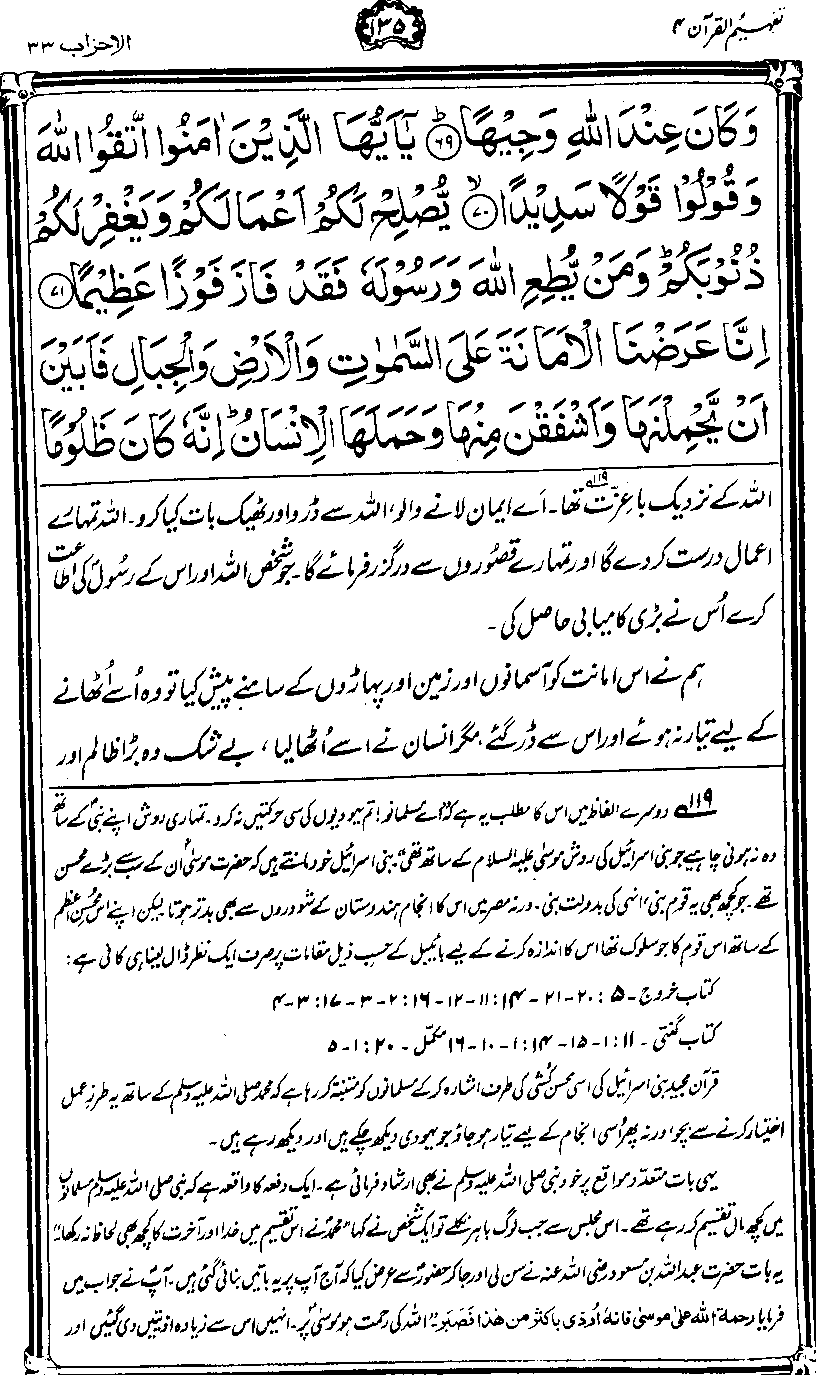 تفہیم القرآن ۴
۱۳۵
الاحزاب ۳۳
وَكَانَ عِنْدَ اللّٰهِ وَجِيْهًا ؕ﴿۶۹﴾ يٰۤاَيُّهَا الَّذِيْنَ اٰمَنُوا اتَّقُوا اللّٰهَ
وَقُوْلُوْا قَوْلًا سَدِيْدًا ۙ﴿۷۰﴾ يُّصْلِحْ لَكُمْ اَعْمَالَكُمْ وَيَغْفِرْ لَكُمْ
ذُنُوْبَكُمْ ؕ وَمَنْ يُّطِعِ اللّٰهَ وَرَسُوْلَهٗ فَقَدْ فَازَ فَوْزًا عَظِيْمًا ﴿۷۱﴾
اِنَّا عَرَضْنَا الْاَمَانَةَ عَلَى السَّمٰوٰتِ وَالْاَرْضِ وَالْجِبَالِ فَاَبَيْنَ
اَنْ يَّحْمِلْنَهَا وَاَشْفَقْنَ مِنْهَا وَحَمَلَهَا الْاِنْسَانُ ؕ اِنَّهٗ كَانَ ظَلُوْمًا
اللہ کے نزدیک باعزّت تھا۔۱۱۹ اَے ایمان لانے والو، اللہ سے ڈرو اور ٹھیک بات کیا کرو۔ اللہ تمہارے
اعمال درست کر دے گا اور تمہارے قصُوروں سے درگزر فرمائے گا۔ جو شخص اللہ اور اس کے رسُولؐ کی اطاعت
کرے اُس نے بڑی کامیابی حاصل کی۔
ہم نے اس امانت کو آسمانوں اور زمین اور پہاڑوں کے سامنے پیش کیا تو وہ اُسے اُٹھانے
کے لیے تیار نہ ہوئے اور اس سے ڈر گئے، مگر انسان نے اسے اُٹھا لیا، بے شک وہ بڑا ظالم اور
۱۱۹؎ دوسرے الفاظ میں اس کا مطلب یہ ہے کہ ”اے مسلمانو! تم یہودیوں کی سی حرکتیں نہ کرو۔ تمہاری روش اپنے نبیؐ کے ساتھ
وہ نہ ہونی چاہیے جو بنی اسرائیل کی روش موسیٰ علیہ السلام کے ساتھ تھی“۔ بنی اسرائیل خود مانتے ہیں کہ حضرت موسیٰؑ ان کے سب سے بڑے محسن
تھے۔ جو کچھ بھی یہ قوم بنی، انہی کی بدولت بنی، ورنہ مصر میں اس کا انجام ہندوستان کے شودروں سے بھی بدتر ہوتا۔ لیکن اپنے اس محسنِ اعظم
کے ساتھ اس قوم کا جو سلوک تھا اس کا اندازہ کرنے کے لیے بائیبل کے حسبِ ذیل مقامات پر صرف ایک نظر ڈال لینا ہی کافی ہے:
کتاب خروج۔ ۵: ۲۰-۲۱ - ۱۴: ۱۱-۱۲ - ۱۶: ۲-۳ - ۱۷: ۳-۴
کتاب گنتی۔ ۱۱: ۱-۱۵ - ۱۴: ۱-۱۰ - ۱۶ مکمّل - ۲۰: ۱-۵
قرآن مجید بنی اسرائیل کی اسی محسن کُشی کی طرف اشارہ کر کے مسلمانوں کو متنبّہ کر رہا ہے کہ محمد صلی اللہ علیہ وسلم کے ساتھ یہ طرزِ عمل
اختیار کرنے سے بچو، ورنہ پھر اُسی انجام کے لیے تیار ہو جاؤ جو یہودی دیکھ چکے ہیں اور دیکھ رہے ہیں۔
یہی بات متعدّد مواقع پر خود نبی صلی اللہ علیہ وسلم نے بھی ارشاد فرمائی ہے۔ ایک دفعہ کا واقعہ ہے کہ نبی صلی اللہ علیہ وسلم مسلمانوں
میں کچھ مال تقسیم کر رہے تھے۔ اس مجلس سے جب لوگ باہر نکلے تو ایک شخص نے کہا ”محمدؐ نے اس تقسیم میں خدا اور آخرت کا کچھ بھی لحاظ نہ رکھا“
یہ بات حضرت عبداللہ بن مسعود رضی اللہ عنہ نے سن لی اور جا کر حضورؐ سے عرض کیا کہ آج آپ پر یہ باتیں بنائی گئی ہیں۔ آپؐ نے جواب میں
فرمایا رحمة اللہ علیٰ موسٰی فانهٗ اُوذِی باکثر من هٰذا فَصَبَر ”اللہ کی رحمت ہو موسیٰؑ پر۔ انہیں اس سے زیادہ اذیتیں دی گئیں اور